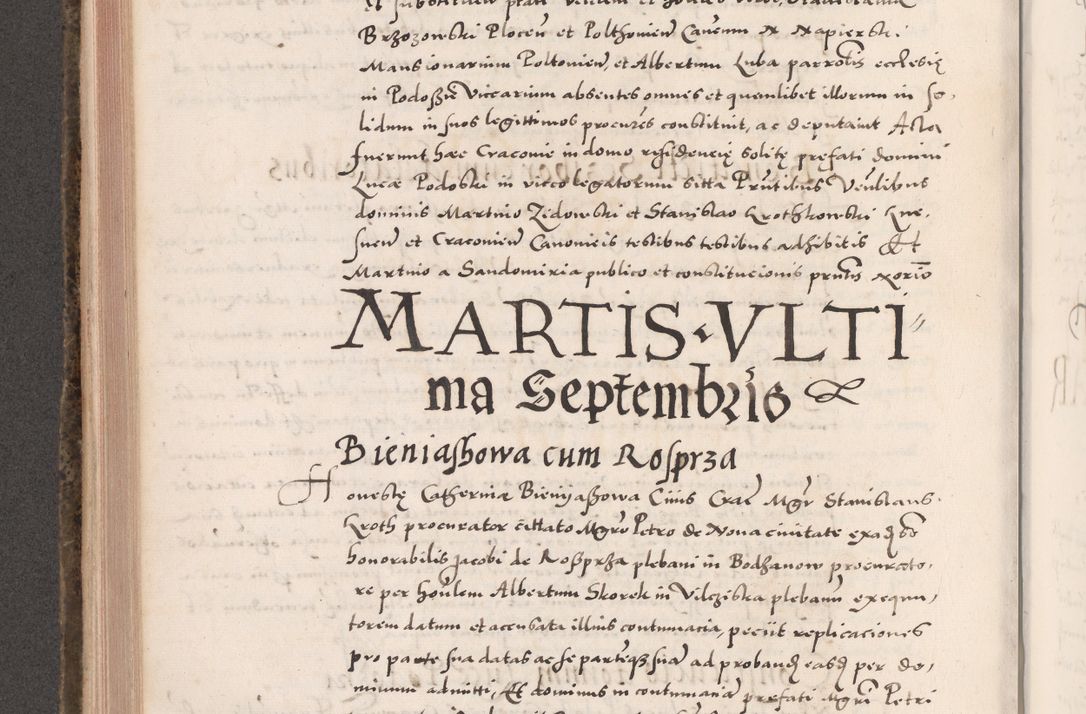 Brzozowski Plocen et Polthonien Canonm N Napierski.
Mansionarium Poltonien, et Albertum Luba parrotis ecclesię
in Podoßie Viccarium absentes omnes et quemlibet illorum in so-
lidum in suos legittimos procures constituit, ac deputauit Acta
fuerunt haec Cracouie in domo residencię solitę prefati domini
Lucæ Podoski in vicco legatorum sitta Prntibus Venlibus
dominis Martino Zędowski et Stanislao Krothkowski Gne-
snen et Cracouien Canonicis testibus testibus adhibitis Et
Martino a Sandomiria publico et constitucionis prntis Norio
MARTIS VLTI
ma Septembris
Bieniashowa cum Rosprza
Honestę Catherinæ Bieniiaßowa Ciuis Crac Mgr Stanislaus
Kroth procurator cittato Mgro Petro de Noua ciuitate exaduso
honorabilis Jacobi de Roßprza plebani in Bodzanow procurato-
re per houlem Albertum Skorek in Vilcziska plebanum exequu-
torem datum et accusata illius contumacia, peciit replicaciones
pro parte sua datas ac se partemque suam ad proband easd per do-
minum admitti, Et dominus in contumaciam prefati Mgri Petri